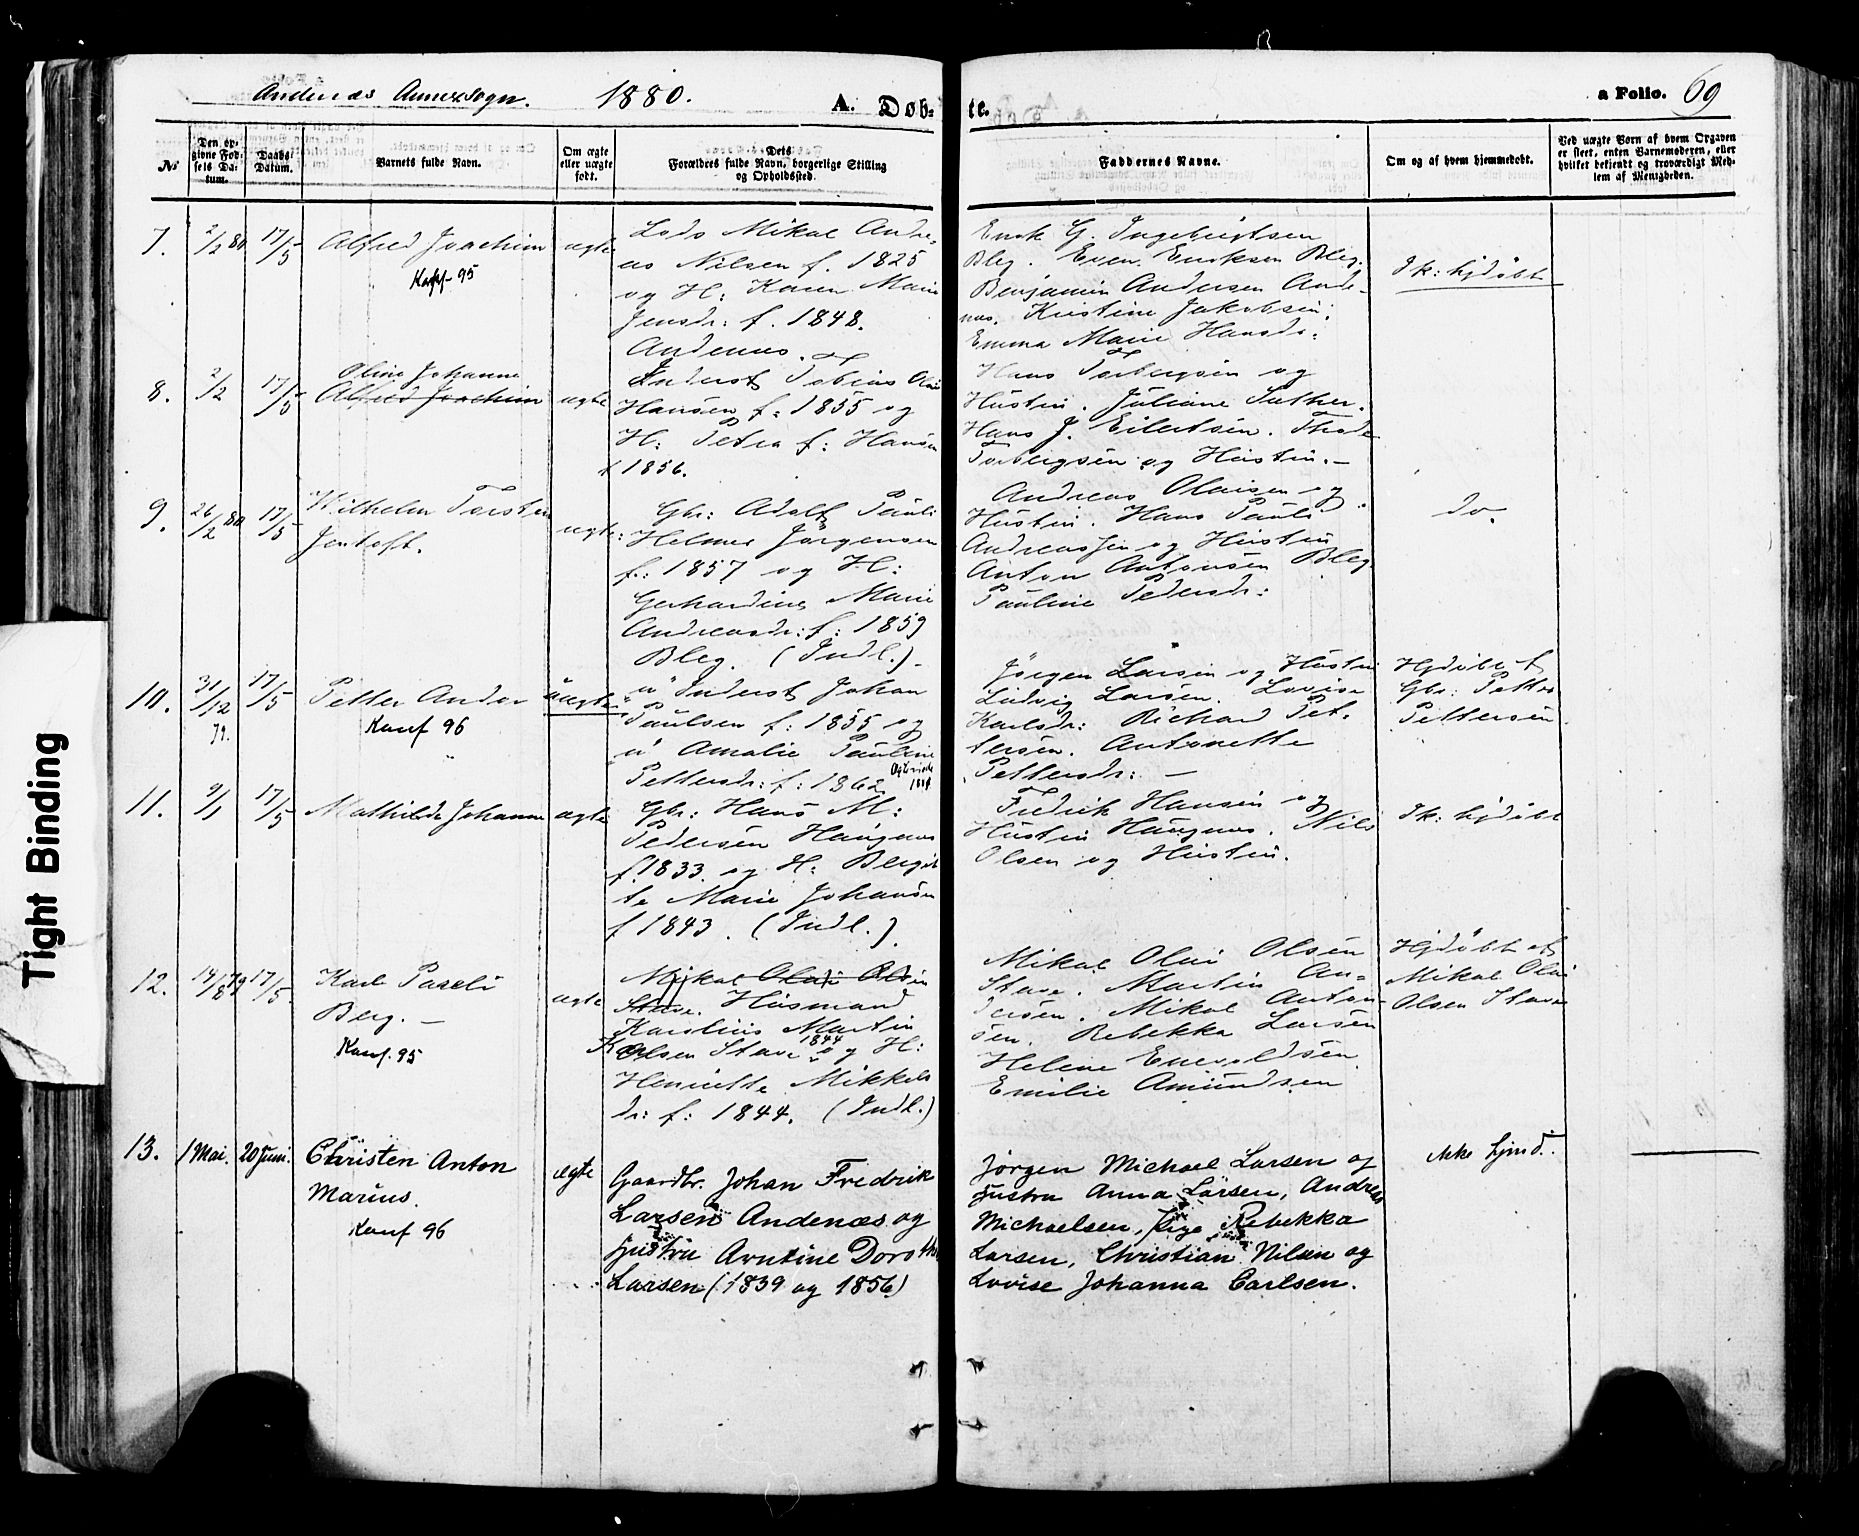 Andenæs Annexsogn. 1880. A. Døb-
te. a Folio. 69
No
Den op-
givne Fød-
sels Da-
tum.
Daabs
Datum.
Barnets fulde Navn.
Om ægte
eller uægte
født.
Dets
Forældres fulde Navn, borgerlige Stilling
og Opholdssted.
Faddernes Navne.
Om og af hvem hjemmedøbt.
Ved uægte Børn af hvem Opgaven
er skeet, enten Barnemoderen, eller
hvilket bekjendt og troværdigt Med-
lem af Menigheden.
7. 2/2 80 17/5 Alfred Joachim ægte
Konf 95
Lods Mikal Andre-
as Nilsen f. 1825
og H: Karen Marie
Jensdr: f. 1848.
Andenæs.
Enok G. Ingebrigtsen
Bleg. Even Eriksen Bleg.
Benjamin Andersen Ande-
næs. Kristine Jakobsen.
Emma Marie Hansdr:
Ik: hjdøbt
8. 2/2 17/5 Oline Johanne
Alfred Joachim ægte
Inderst Tobias Olai
Hansen f: 1855 og
H: Petra f: Hansen
f 1856.
Hans Torbergsen og
Hustru. Juliane
Hans J. Eilertsen.
Torbergsen og Hustru.-
9. 26/2 80 17/5 Wilhelm Torstein
Jentoft. ægte:
Gbr: Adolf Pauli
Helmer Jørgensen
f: 1857 og H:
Gerhardine Marie
Andreasdr: f: 1859
Bleg. (Indl.)-
Andreas Olaisen og
Hustru. Hans Pauli
Andreassen og Hustru
Anton Antonsen Bleg
Pauline Pedersdr:
do.
10. 31/12 79. 17/5 Petter Andor uægte
Konf 96
u Inderst Johan
Paulsen f: 1855 og
u Amalie Pauline
Pettersdr: f: 1862
Jørgen Larsen og Hustru
Ludvig Larsen. Lovise
Karlsdr: Richard Pet-
tersen. Antonette
Pettersdr: -
Hjdøbt af
Gbr: Petter
Pettersen
11. 9/1 17/5 Mathilde Johanne ægte
Gbr: Hans M:
Pedersen Haugnæs
f. 1833. og H: Bergit-
te Marie Johansen
f 1843. (Indl.).
Fredrik Hansen og
Hustru Haugnæs. Nils
Olsen og Hustru.
Ik: hjdøbt
12. 14/8 79 17/5 Karl Paseli
Berg. - ægte
Konf. 95
Mikal Olai Olsen
Stave. Husmand
Karolius Martin
Olsen Stave 1844 og H:
Henriette Mikkels
dr: f: 1844. (Indl.)
Mikal Olai Olsen
Stave. Martin An-
dersen. Mikal Anton-
sen. Rebekka Larsen
Helene Enevoldsen
Emilie Amundsen
Hjdøbt af
Mikal Olai
Olsen Stave
13. 1 Mai. 20 Juni. Christen Anton
Marius. ægte
Konf 96
Gaardbr. Johan Fredrik
Larsen Andenæs og
Hustru Arntine Dorothea
Larsen (1839 og 1856)
Jørgen Michael Larsen og
Hustru Anna Larsen, Andreas
Michaelsen, Pige Rebekka
Larsen, Christian Nilsen og
Lovise Johanna Carlsen.
ikke hjmd.
Tight Binding